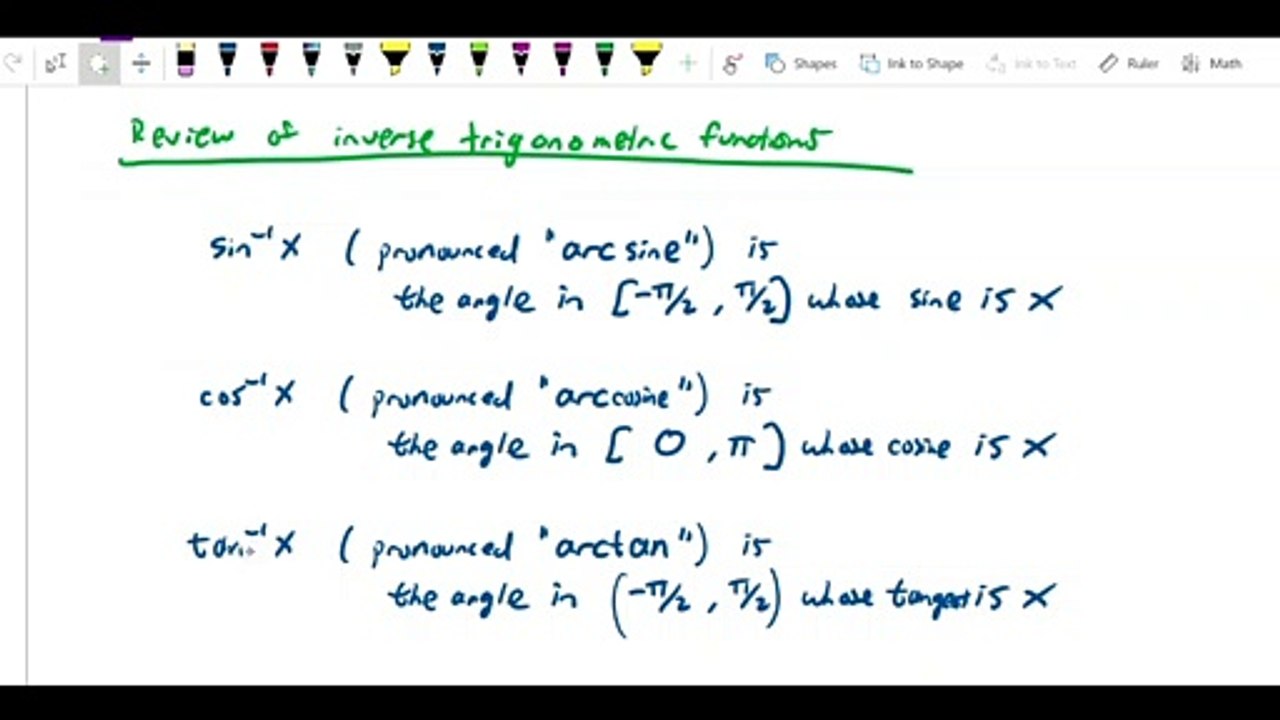 Shapes Ink to Shape Ink to Text Ruler Math
Review of inverse trigonometric functions
sin⁻¹ x ( pronounced "arcsine") is
the angle in [-π/2 , π/2] whose sine is x
cos⁻¹ x ( pronounced "arccosine") is
the angle in [ 0 , π ] whose cosine is x
tan⁻¹ x ( pronounced "arctan") is
the angle in (-π/2 , π/2) whose tangent is x